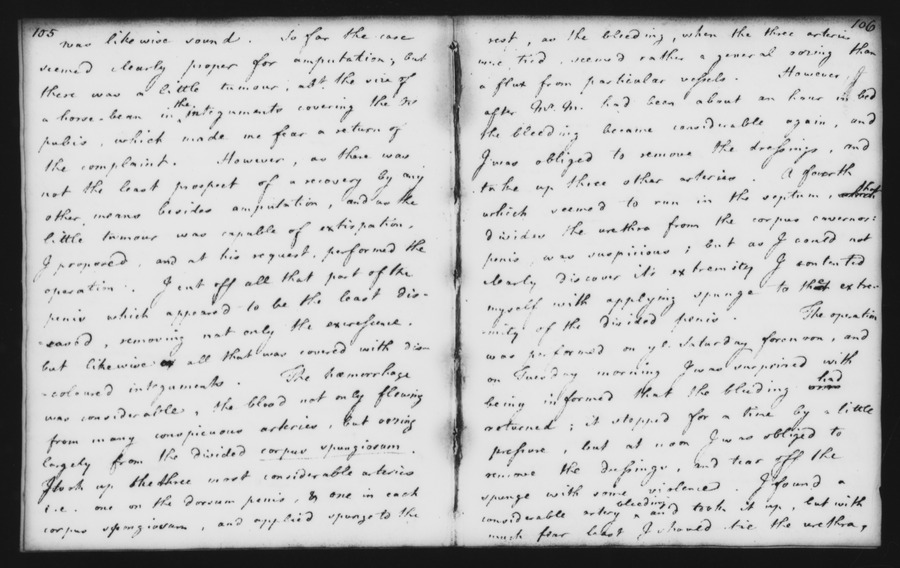 105
was likewise sound. So far the case
seemed clearly proper for amputation; but
there was a little tumour, abt. the size of
a horse-bean in the integuments covering the os
pubis, which made me fear a return of
the complaint. However, as there was
not the least prospect of a recovery by any
other means besides amputation, and as the
little tumour was capable of extirpation,
I proposed, and at his request, performed the
operation. I cut off all that part of the
penis which appeared to be the least dis-
-eased, removing not only the excrescence,
but likewise all that was covered with dis-
-coloured integuments. The hæmorrhage
was considerable, the blood not only flowing
from many conspicuous arteries, but oozing
largely from the divided corpus spongiosum.
I took up the three most considerable arteries
i.e. one on the dorsum penis, & one in each
corpus spongiosum, and applied sponge to the
106
rest, as the bleeding, when the three arteries
were tied, seemed rather a general oozing than
a flux from particular vessels. However, I
after Mr. M. had been about an hour in bed
the bleeding became considerable again, and
I was obliged to remove the dressings, and
take up three other arteries. A fourth
which seemed to run in the septum, which that
divides the urethra from the corpus cavernos:
penis, was suspicious; but as I could not
clearly discover it's extremity I contented
myself with applying sponge to the extre-
mity of the divided penis. The operation
was performed on ye. Saturday forenoon, and
on Tuesday morning I was surprised with
being informed that the bleeding had
returned; it stopped for a time by a little
pressure, but at noon I was obliged to
remove the dressings, and tear off the
sponge with some violence. I found a
considerable artery bleeding and took it up, but with
much fear least I should tie the urethra,